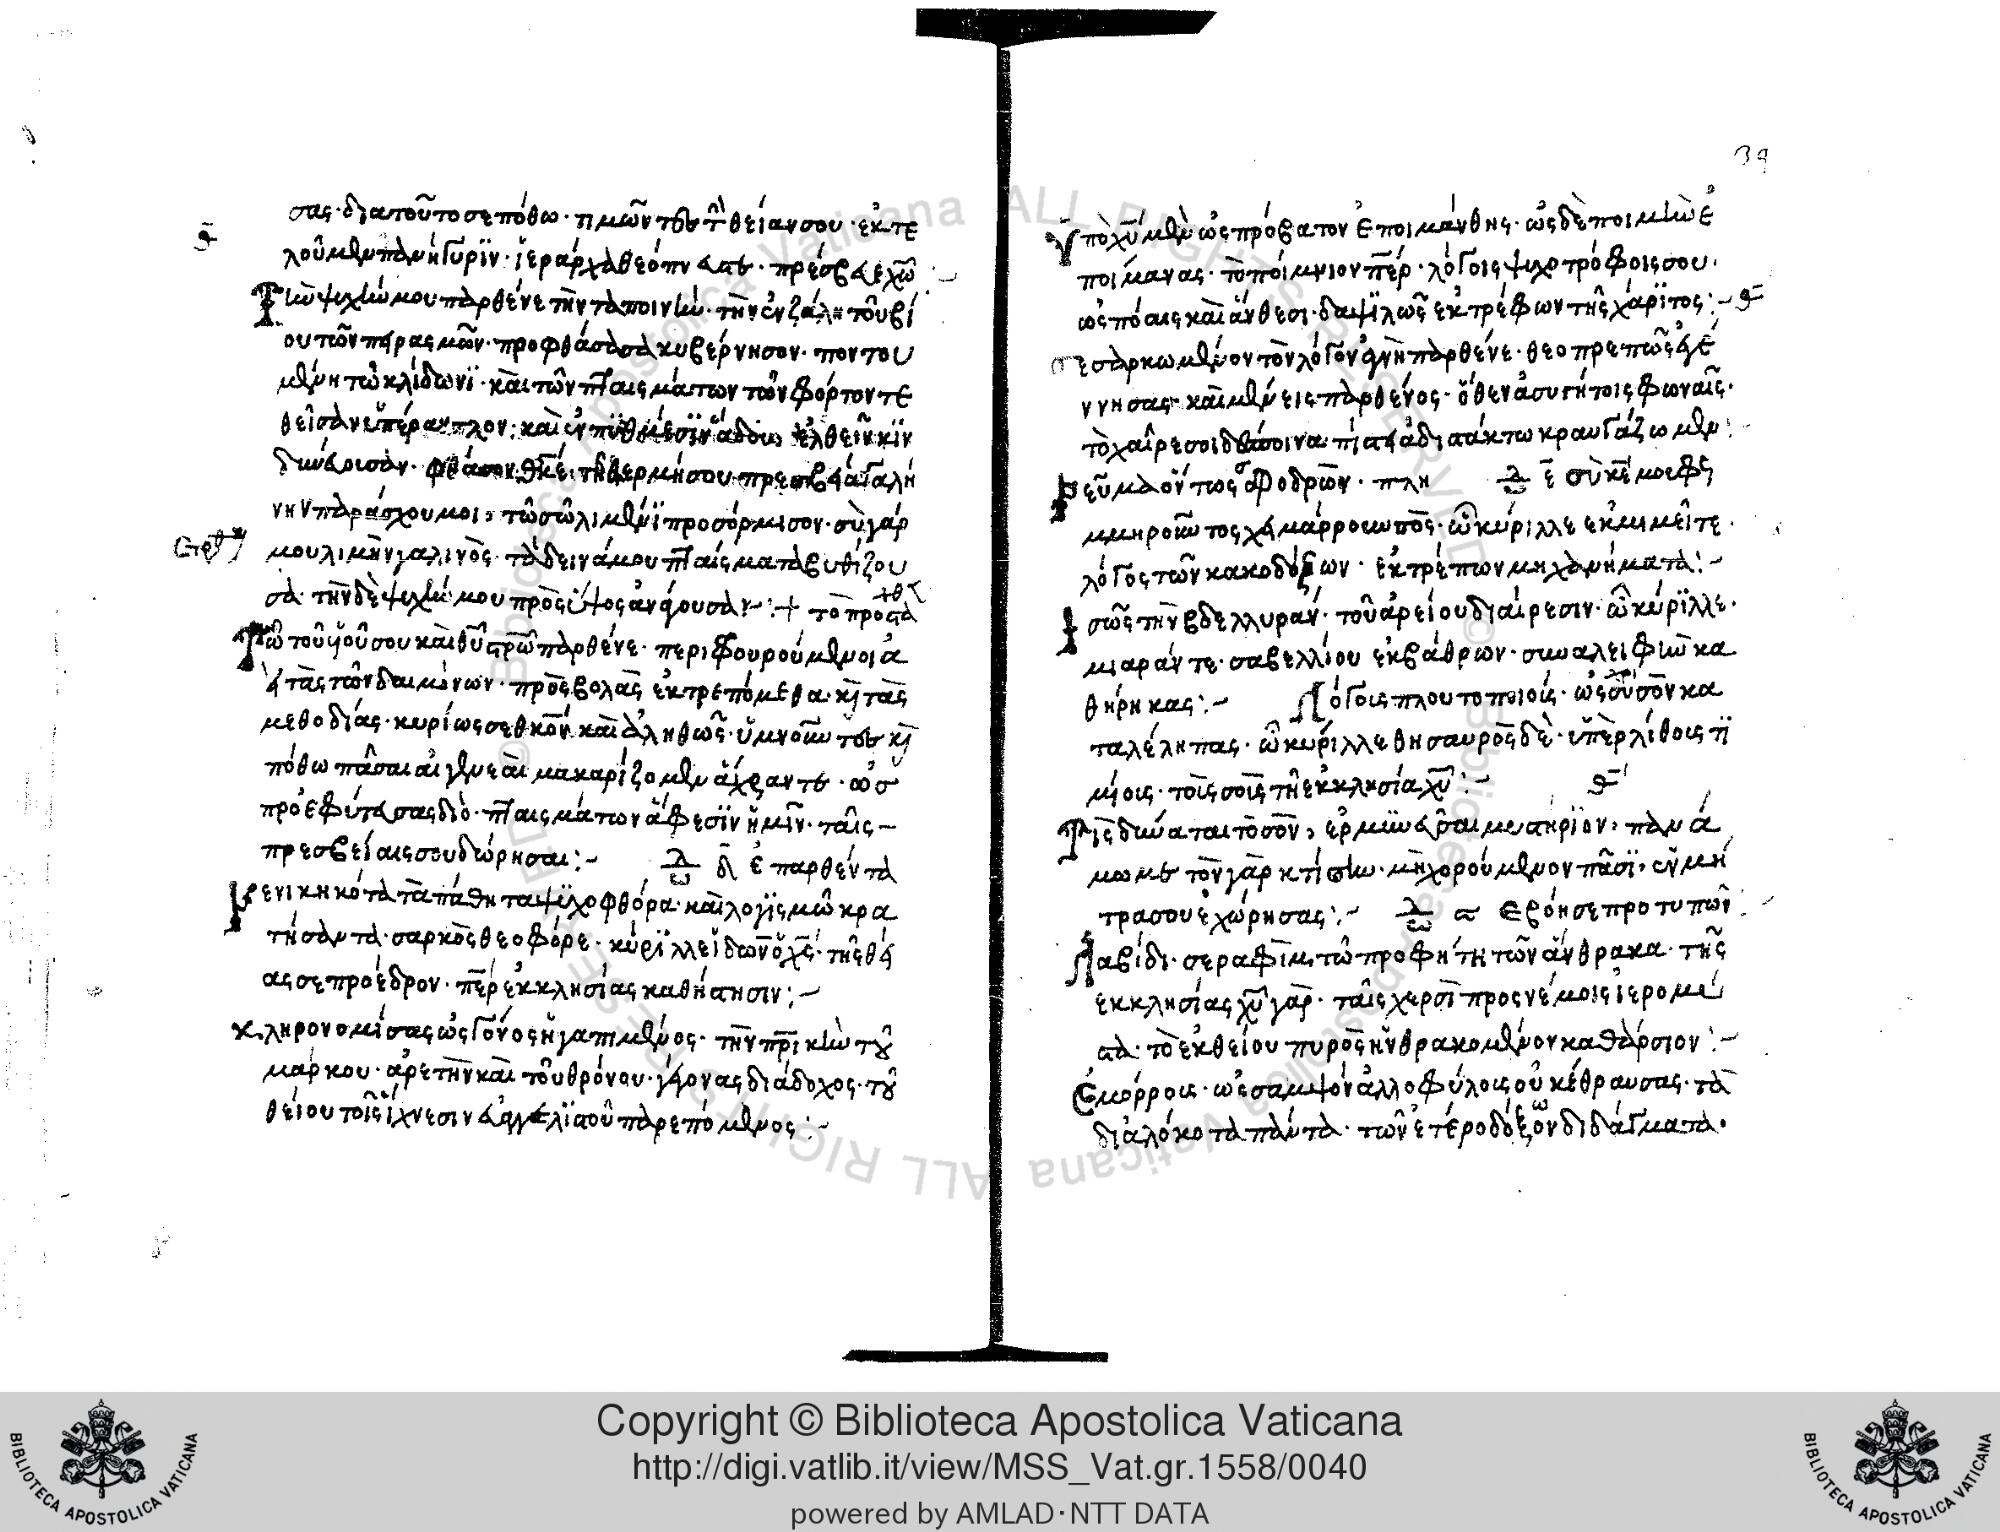 σας· διατοῦτο σε πόθω· τιμῶντες τ θείαν σου· ἐκτε
λοῦμεν πανήγυριν· ἱεράρχα θεόπνευστε· πρέσβευε χω
Τὴν ψυχήν μου παρθένε τὴν ταπεινήν· τὴν ἐν ζάλη τοῦ βί
ου τῶν πειρασμῶν· προφθάσασα κυβέρνησον· ποντου
μένη τῶ κλίδωνϊ· καὶ τῶν πταισμάτων τῶν φόρτον τε
δυνεύουσαν· φθάσον θκε τῆ θερμή σου πρεσβεία γαλή
νην παράσχου μοι, τῶ σῶ λιμένϊ προσόρμισον· σὺ γάρ
μου λιμὴν γαληνὸς· τὰ δεινά μου πταίσματα βυθίζου
σα· τὴν δὲ ψυχήν μου πρὸς ὕψος ἀνάγουσαν:+ τὸ προστα
Τῶ τοῦ υοῦ σου καὶ θυ στρω παρθένε· περιφρουρούμενοι ἀ
εὶ τὰς τῶν δαιμόνων· πρὸσβολὰς ἐκτρεπόμεθα· κ τὰς
μεθοδίας· κυρίως σε θκον καὶ ἀληθῶς· ὑμνοῦντες κ
πόθω πᾶσαι αἱ γενεαὶ μακαρίζομεν ἄχραντε· ὡσ
πρὸ ἐφύτευσας διὸ· πταισμάτων ἄφεσϊν ἡμῖν· ταῖς
πρεσβείαις σου δώρησαι:~ ὠ δ ἐπαρθέντα
Νενικηκότα τὰ πάθη τα ψϊχοφθόρα· καὶ λογϊσμῶ κρα
τήσαντα· σαρκὸς θεοφόρε· κύρϊλλε ἰδων ὁ χς· τῆς θεί
ας σε πρόεδρον· περ ἐκκλησίας καθήστησιν:~
Κληρονομίσας ὡς γόνος ἠγαπιμένος· τὴν πρικὴν τοῦ
μάρκου· ἀρετὴν καὶ τοῦ θρόνου· γέγονας διάδοχος· τοῦ
θείου τοῖς ἴχνεσιν εὐαγγελϊστοῦ παρεπόμενος:~
39
Υπὸ χυ μὲν ὡς πρόβατον ἐποιμάνθης· ὡς δὲ ποιμὴν ἐ
ποίμανας· τὸ ποίμνιον περ· λόγοις ψυχοτρόφοις σου·
ὡς πόαις καὶ ἄνθεσι· δαψϊλῶς ἐκτρέφων τῆς χάρϊτος:~
Σεσαρκωμένον τὸν λόγον ἁγνὴ παρθένε· θεοπρεπῶς ἐγέ
ννησας· καὶ μένεις παρθένος· ὅθεν ἀσυγήτοις φωναῖς·
Ρεῦμα ὄντως σφοδρῶν· πλη ὠ ε σὺ κε μοι φς
μμηροῦντος χειμάρροις παντὸς· ὦ κύριλλε ἐκμιμεῖτε·
λόγος τῶν κακοδόξων· ἐκτρέπων μηχανήματα:~
Ισῶς τὴν βδελλυρὰν· τοῦ ἀρείου διαίρεσιν· ὦ κύρϊλλε·
μιαράν τε· σαβελλίου ἐκβάθρων· συναλειφὴν κα
θήρηκας:~ Λόγοις πλουτοποιοίς· ὡς οὐσῖον κα
ταλέληπας· ὦ κύριλλε θησαυρὸς δὲ· ὑπὲρ λίθοις τι
μίοις· τοῖς σοῖς τῆ ἐκκλησία χυ:~
Τὶς δύναται τὸ σὸν, ἑρμϊνεῦσαι μυστήρϊον, πανά
μωμε τὸν γὰρ κτίστην· μὴ χορούμενον πᾶσϊ, ἐν μή
τρα σου ἐχώρησας:~ ὠ Ϛ Εβόησε προτυπῶν
Λαβίδι· σεραφὶμ τῶ προφήτη τῶν ἄνθρακα· τῆς
ἐκκλησίας χυ γαρ· ταῖς χερσὶ προςνέμοις ἱερομύ
στα· τὸ ἐκ θείου πυρὸς ἠνθρακομένον καθάρσιον:~
Εμόρροις· ὡς σαμψόν ἀλλοφύλοις οὐκ ἔθραυσας· τὰ
διαλόκοτα πάντα· τῶν ἑτεροδόξον διδάγματα·
Copyright © Biblioteca Apostolica Vaticana
http://digi.vatlib.it/view/MSS_Vat.gr.1558/0040
powered by AMLAD·NTT DATA
BIBLIOTECA APOSTOLICA VATICANA
BIBLIOTECA APOSTOLICA VATICANA